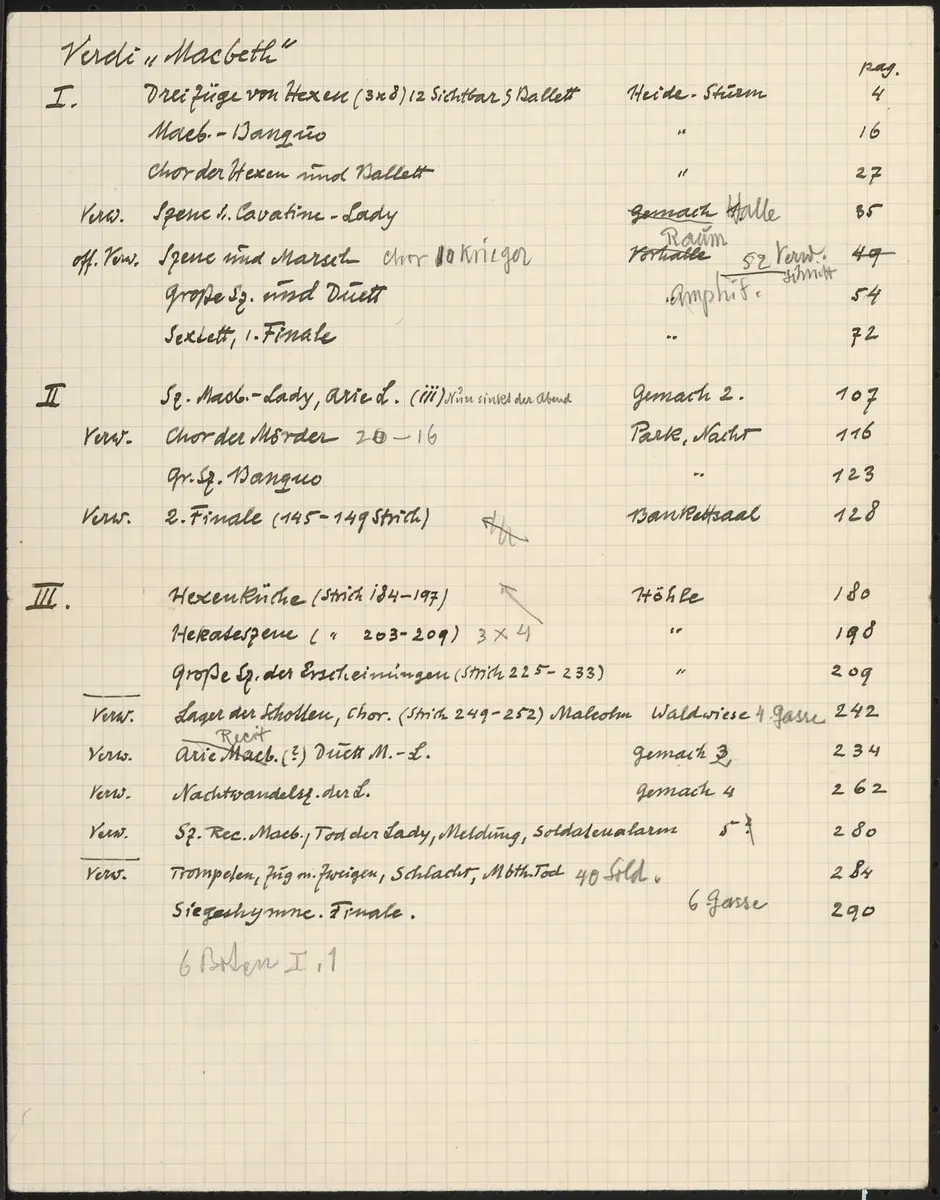 Verdi „Macbeth“
pag.
I. Drei Züge von Hexen (3x8) 12 Sichtbar 5 Ballett Heide-Sturm 4
Macb. - Banquo " 16
Chor der Hexen und Ballett " 27
Verw. Szene u. Cavatine - Lady Gemach Halle 35
Raum
off. Verw. Szene und Marsch Chor 10 Krieger Vorhalle Sz Verw. 49
Schnitt
Große Sz. und Duett Amphit. 54
Sextett, 1. Finale " 72
II Sz. Macb. - Lady, Arie L. (iii) Nun sinkt der Abend Gemach 2. 107
Verw. Chor der Mörder 20 - 16 Park, Nacht 116
Gr. Sz. Banquo " 123
Verw. 2. Finale (145 - 149 Strich) Bankettsaal 128
III. Hexenküche (Strich 184 - 197) Höhle 180
Hekateszene ( " 203 - 209) 3 x 4 " 198
Große Sz. der Erscheinungen (Strich 225 - 233) " 209
Verw. Lager der Schotten, Chor. (Strich 249 - 252) Malcolm Waldwiese 4 Gasse 242
Recit
Verw. Arie Macb. (?) Duett M. - L. Gemach 3, 234
Verw. Nachtwandelsz. der L. Gemach 4 262
Verw. Sz. Rec. Macb., Tod der Lady, Meldung, Soldatenalarm 5 ? 280
Verw. Trompeten, Zug m. Zweigen, Schlacht, Mbth. Tod 40 Sold. 284
Siegeshymne. Finale. 6 Gasse 290
6 Boten I. 1